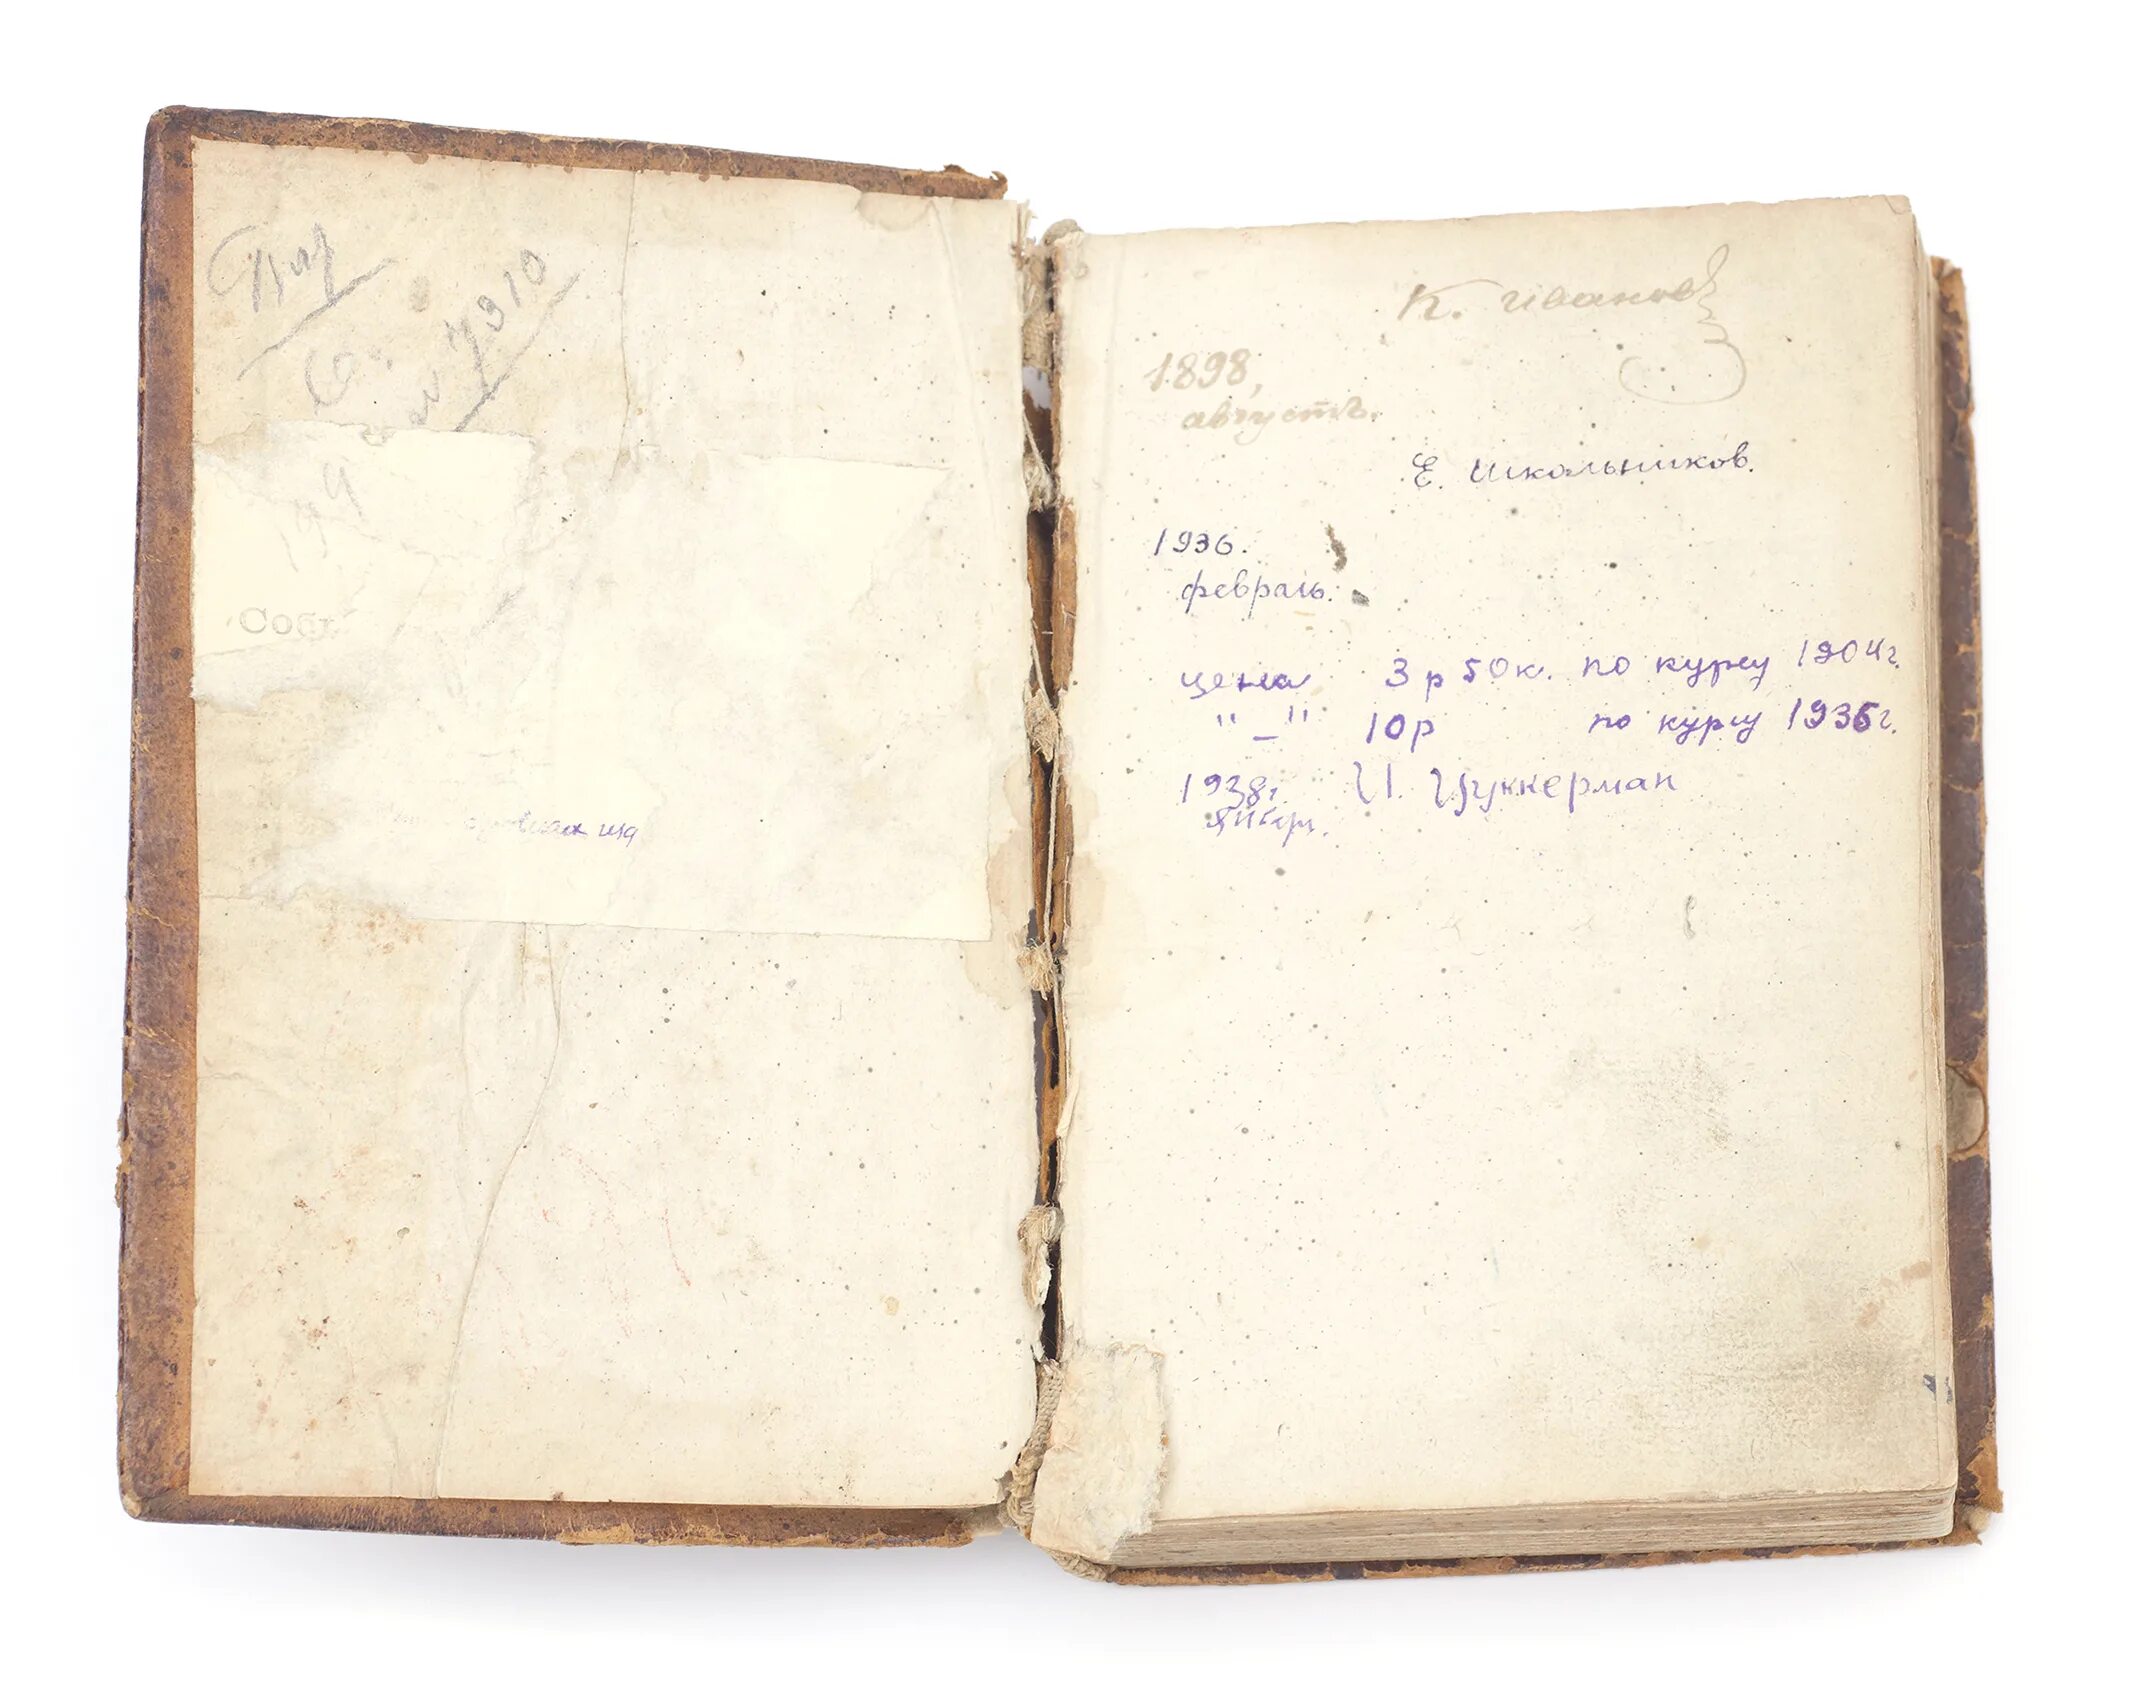 7910
Собр
К. Иванов
1898,
августъ.
Е. Школьников.
1936.
февраль.
цена 3 р 50 к. по курсу 1904 г.
"–" 10 р по курсу 1936 г.
1938 г И. Цуккерман
Январь.